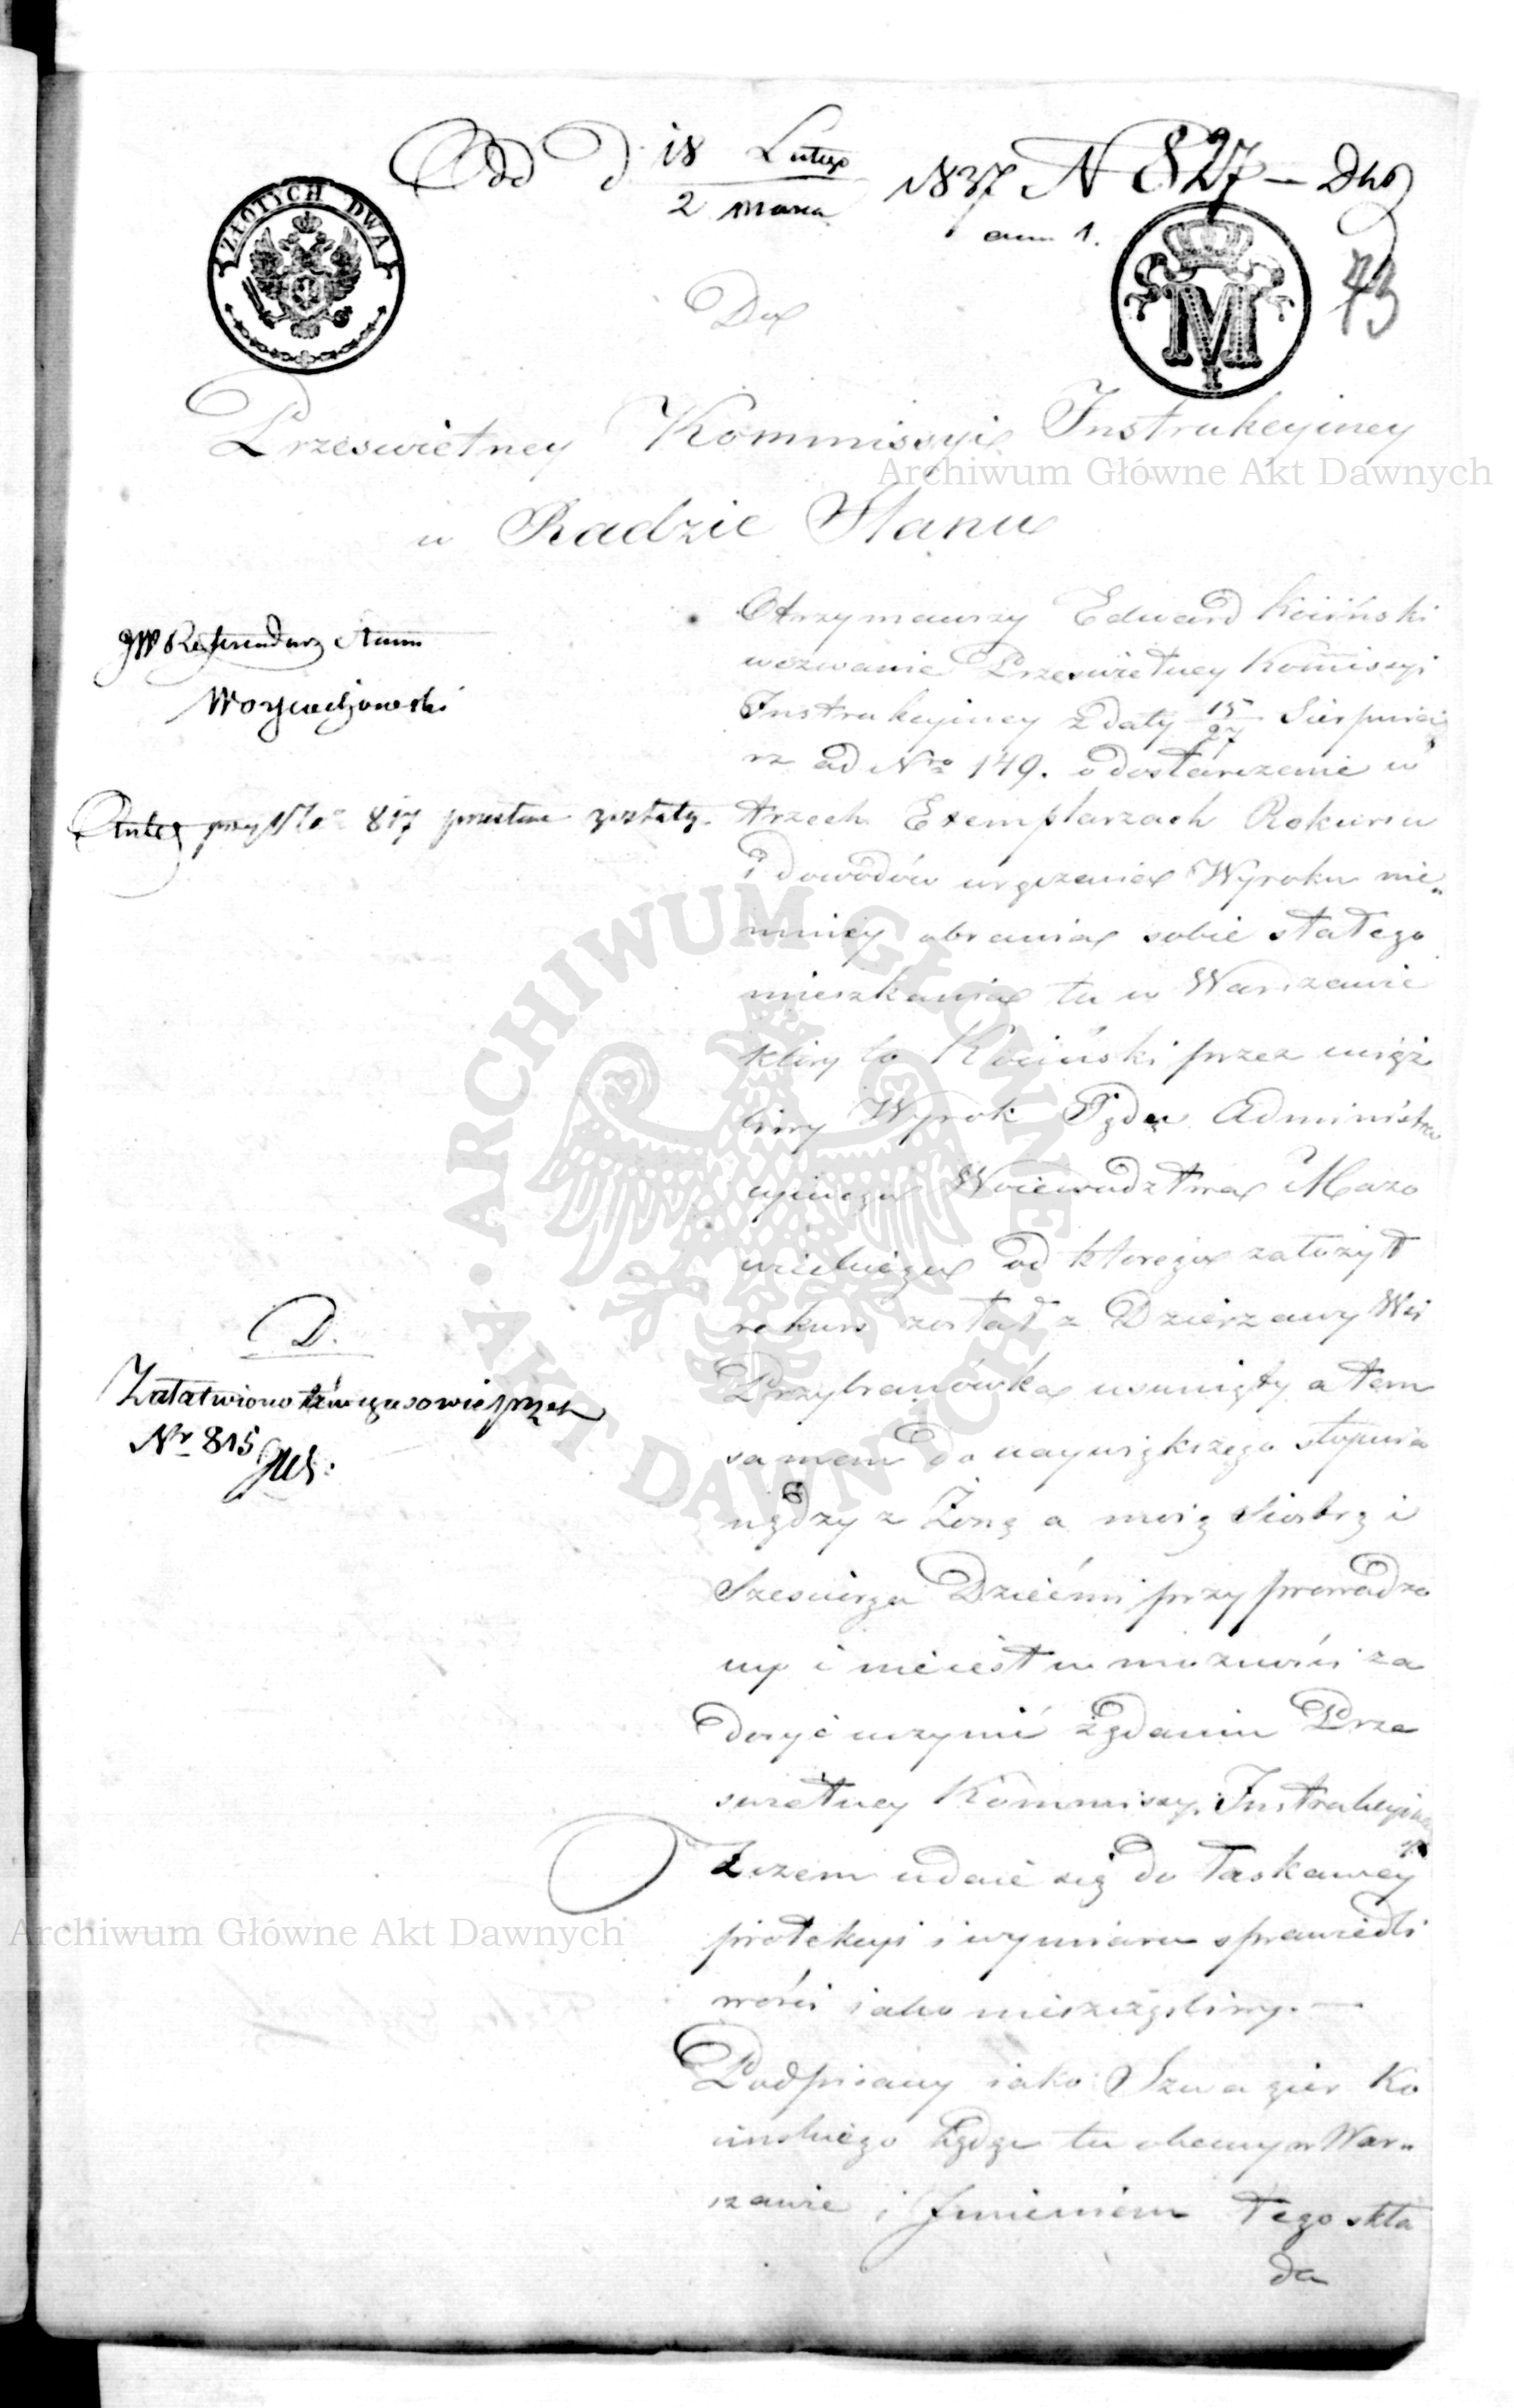 Odd d 18 Lutego / 2 marca 1837 N 827 –
ann 1.
ZŁOTYCH DWA
M
I
73
Do
Przeswietney Kommissyi Instrukcyiney
w Radzie Stanu
JW Referendarz Stanu
Woyciechowski
przy No 817 zostały.
D.
Załatwiono przez
Nr 815
Otrzymawszy Edward Kociński
wezwanie Przeswietney Kommissyi
Instrukcyiney z daty 15/27 Sierpnia
rz ad Nro 149. o dostarczenie w
trzech Exemplarzach Rekursu
i dowodów wręczenia Wyroku nie„
mniey obrania sobie stałego
mieszkania tu w Warszawie
który to Kociński przez uciąż
liwy Wyrok Sądu Administra
cyinego Woiewudztwa Mazo
wieckiego od którego założył
rekurs został z Dzierzawy Wsi
Przybranówka usunięty a tem
samem do naywiększego stopnia
nędzy z Żoną a moią Siostrą i
Sześciorga Dziećmi przyprowadzo
ny i nie iest w mozności za
dosyć uczynić żądaniu Prze
swietney Kommissyi Instrukcyiney
Zczem udaie się do łaskawey
protekcyi i wymiaru sprawiedli
wości iako nieszczęśliwy. —
Podpisany iako Szwagier Ko
cinskiego będąc tu obecny w War„
szawie i Jmieniem tego skła
da
Archiwum Główne Akt Dawnych
ARCHIWUM GŁÓWNE AKT DAWNYCH
Archiwum Główne Akt Dawnych